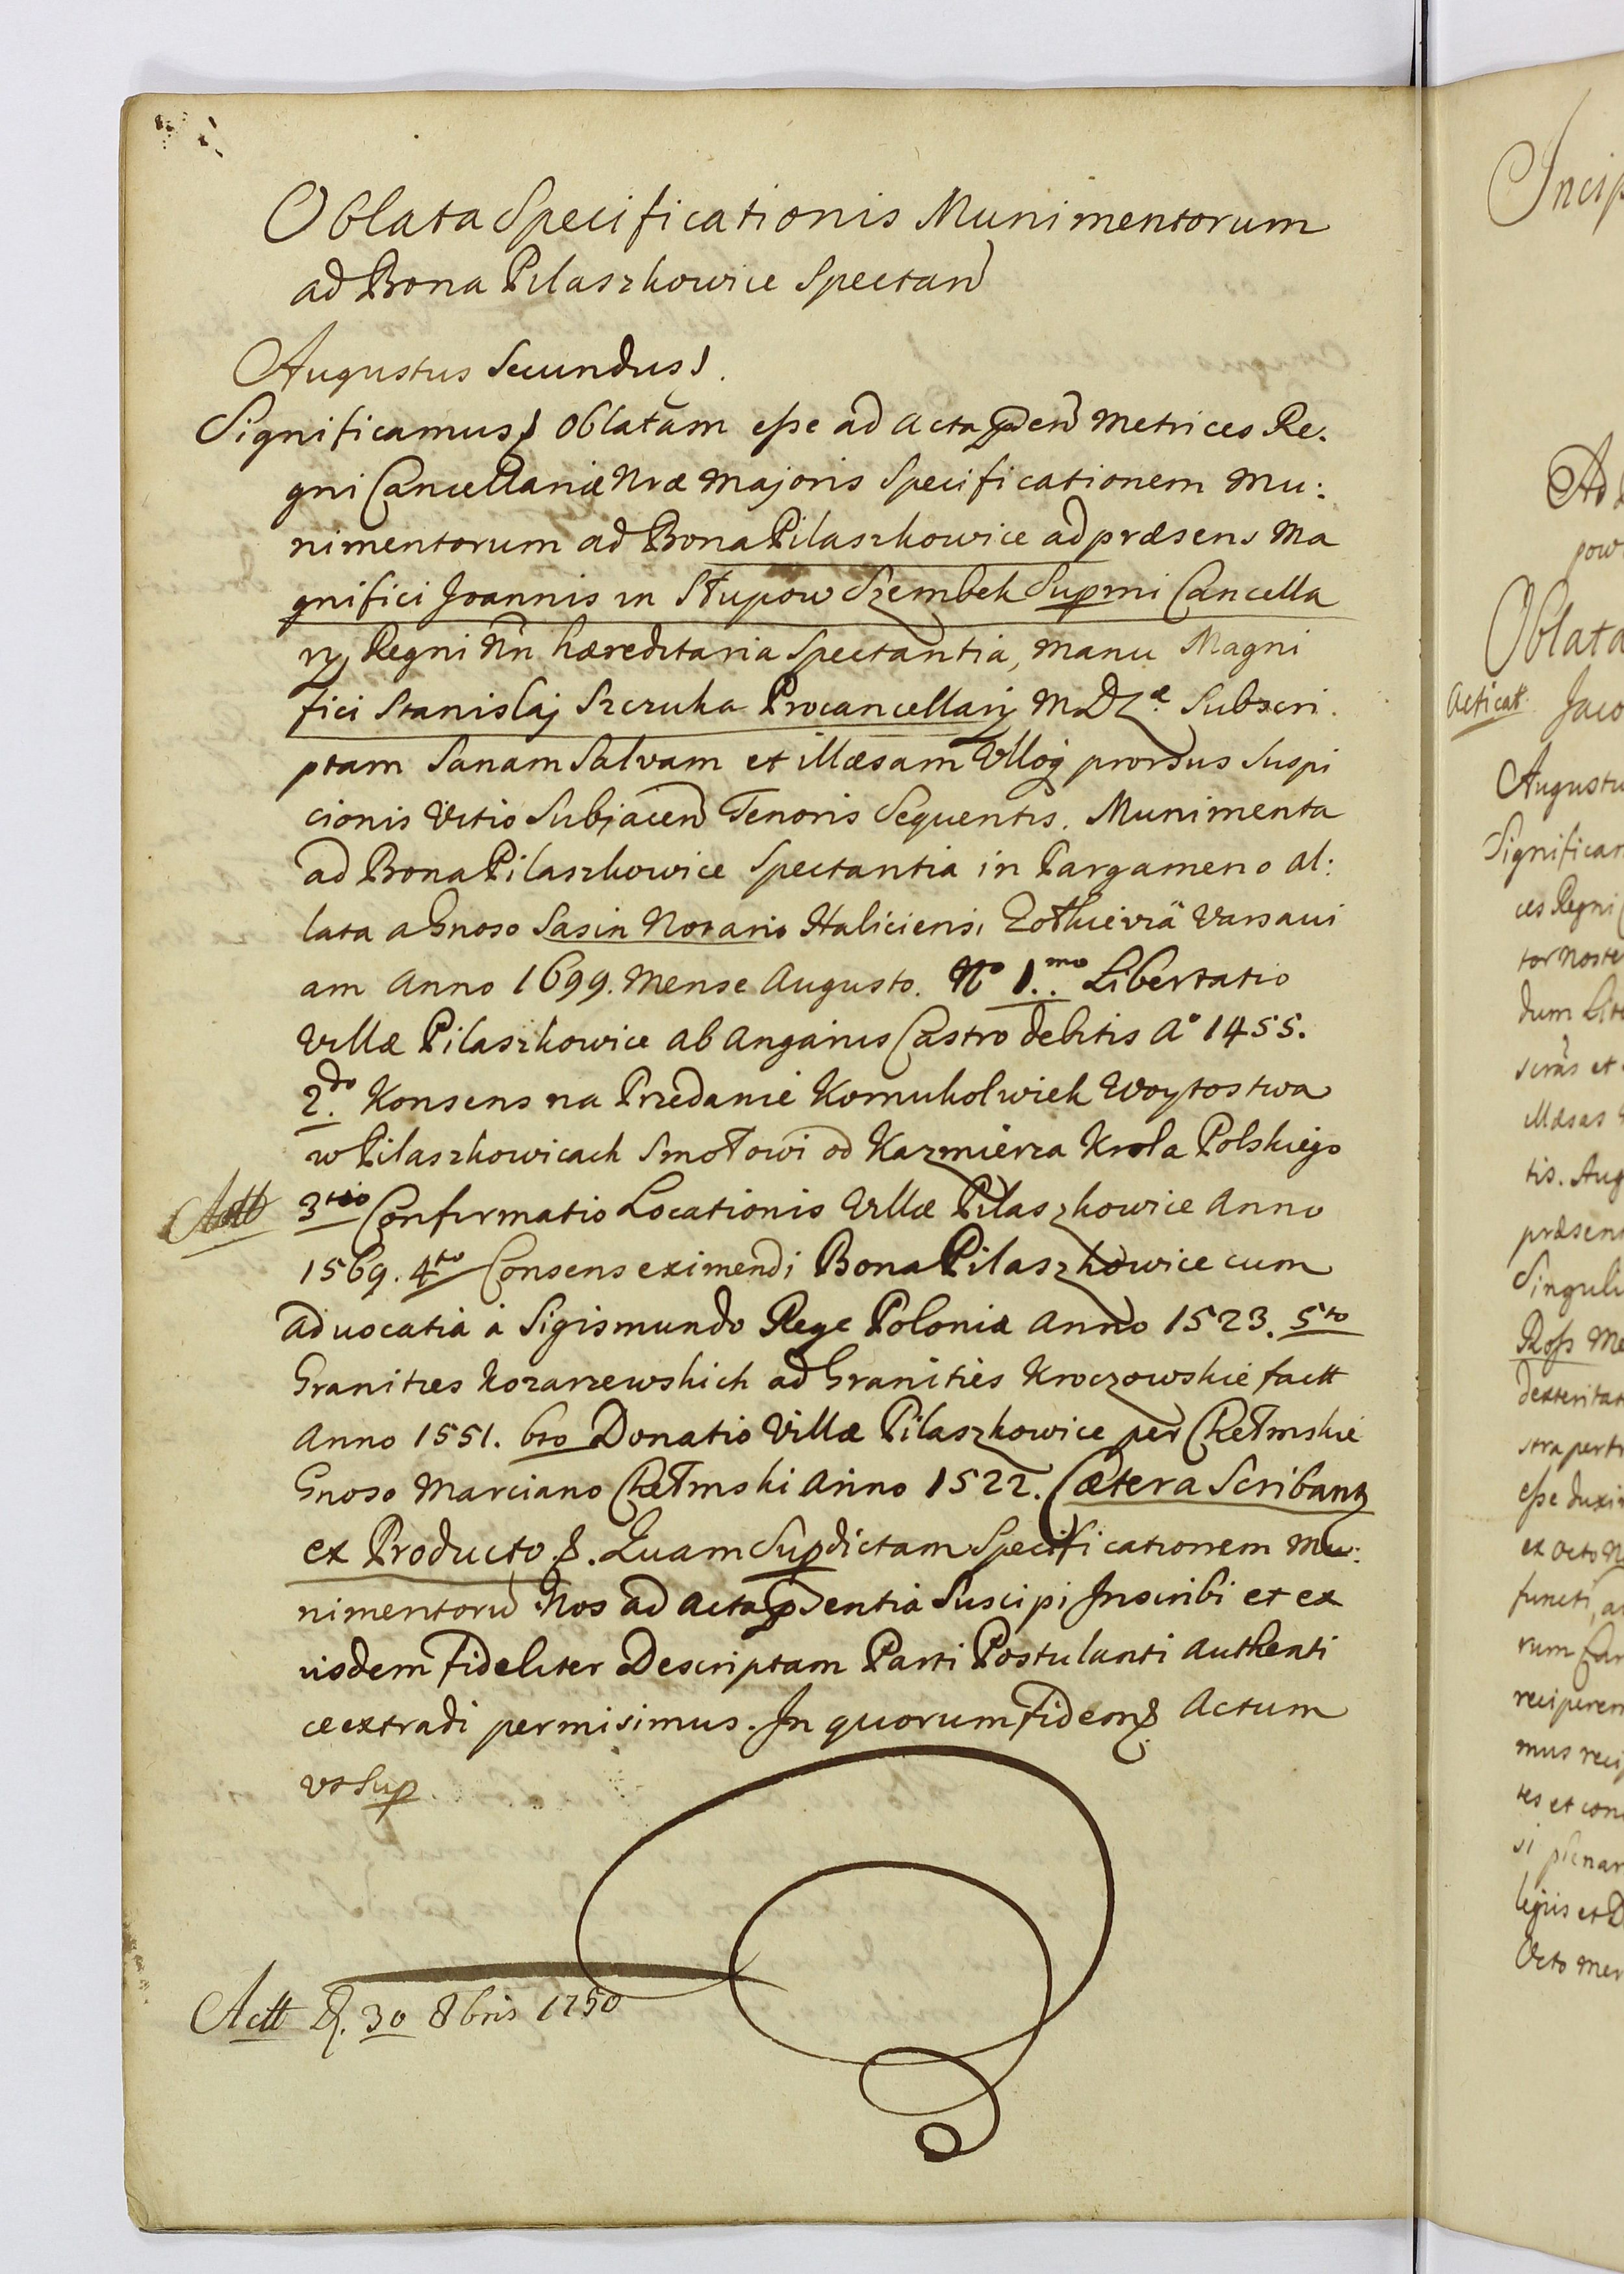 Oblata Specificationis Munimentorum
ad Bona Pilaszkowice Spectan
Augustus Secundus
Significamus Oblatam esse ad Acta pñden Metrices Re.
gni Cancellariæ Nræ Majoris Specificationem Mu:
nimentorum ad Bona Pilaszkowice ad præsens Ma
gnifici Joannis in Słupow Szembek Supmi Cancella
rij Regni Nri hæreditaria Spectantia, Manu Magni
fici Stanislaj Szczuka Procancellarij M.D.L.æ Subscri.
ptam Sanam Salvam et illæsam Ulloq prorsus Suspi
cionis Vitio Subjacen Tenoris Sequentis. Munimenta
ad Bona Pilaszkowice Spectantia in Pargameno al:
lata a Gnoso Sasin Notario Haliciensi Zołkieviâ Varsavi
am Anno 1699. Mense Augusto. No 1.mo Libertatio
Villæ Pilaszkowice ab Angariis Castro debitis Ao 1455.
2.do Konsens na Przedanie Komukolwiek Woytostwa
w Pilaszkowicach Smotowi od Kazmierza Krola Polskiego
Actt 3tio Confirmatio Locationis Villæ Pilaszkowice Anno
1569. 4to Consens eximendi Bona Pilaszkowice cum
advocatiâ à Sigismundo Rege Poloniæ Anno 1523. 5to
Granitzes Kozarzewskich ad Granities Kroczowskie factt
Anno 1551. 6to Donatio Villæ Pilaszkowice per Chełmskie
Gnoso Marciano Chełmski Anno 1522. Cætera Scribantz
ex Producto &. Quam Supdictam Specificationem Mu:
nimentoru Nos ad Acta pñdentia Suscipi Inscribi et ex
iisdem Fideliter Descriptam Parti Postulanti Authenti
ce extradi permisimus. In quorum Fidem & Actum
ut Sup.
Actt D. 30 8bris 1750
Incip
Ad
pow
Oblata
Acticat. Jaco
Augustu
Significam
ces Regni C
tor Noster
dum Lite
scras et
illæsas
tis. Aug
præsen
Singuli
Ross Me
dexteritat
stra pert
esse duxi
ex octo N
functi, a
rum Can
reciperem
mus reci
tes et con
si plenar
legiis et D
Octo Men